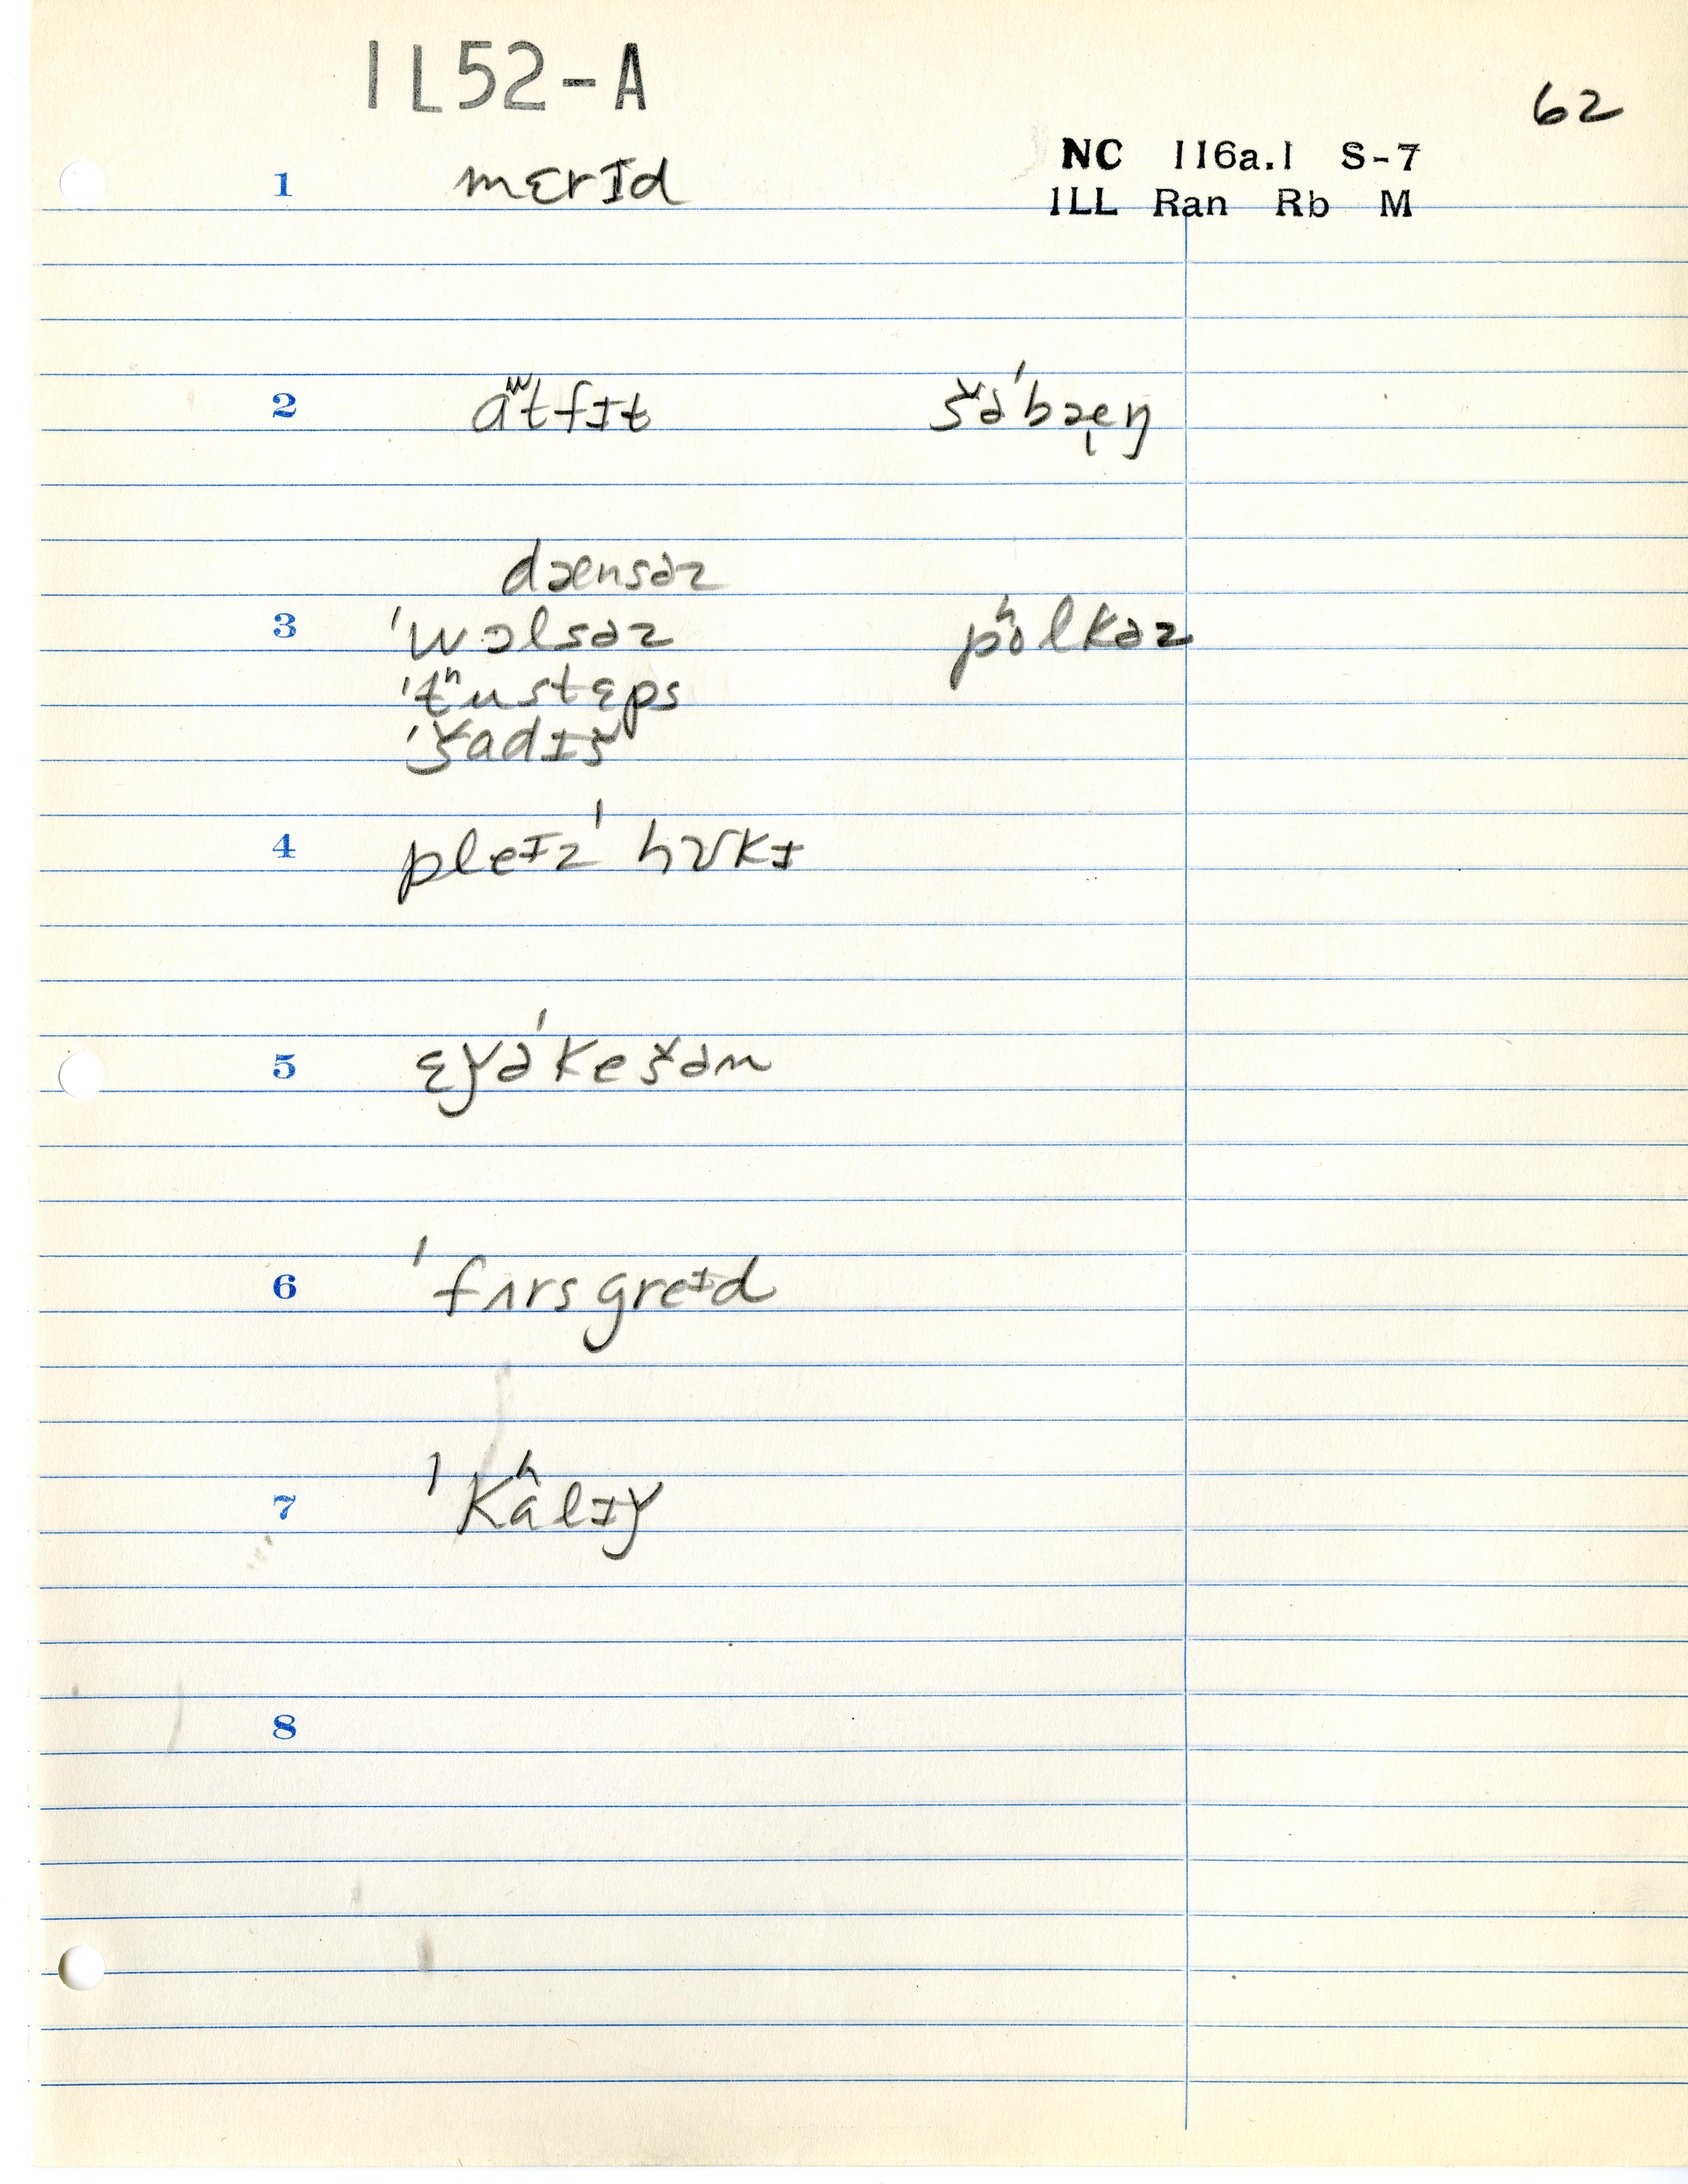 1L52-A
62
NC 116a.1 S-7
1LL Ran Rb M
1 mɛrɪd
2 aʷtfɪt šə'bæ̨ŋ
dænsəz
3 'wɔlsəz pʰolkəz
'tʰustɛps
'šadɪš
4 pleɪz 'hʊkɪ
5 ɛǰə'kešən
6 'fʌrsgreɪd
7 'kʰalɪǰ
8